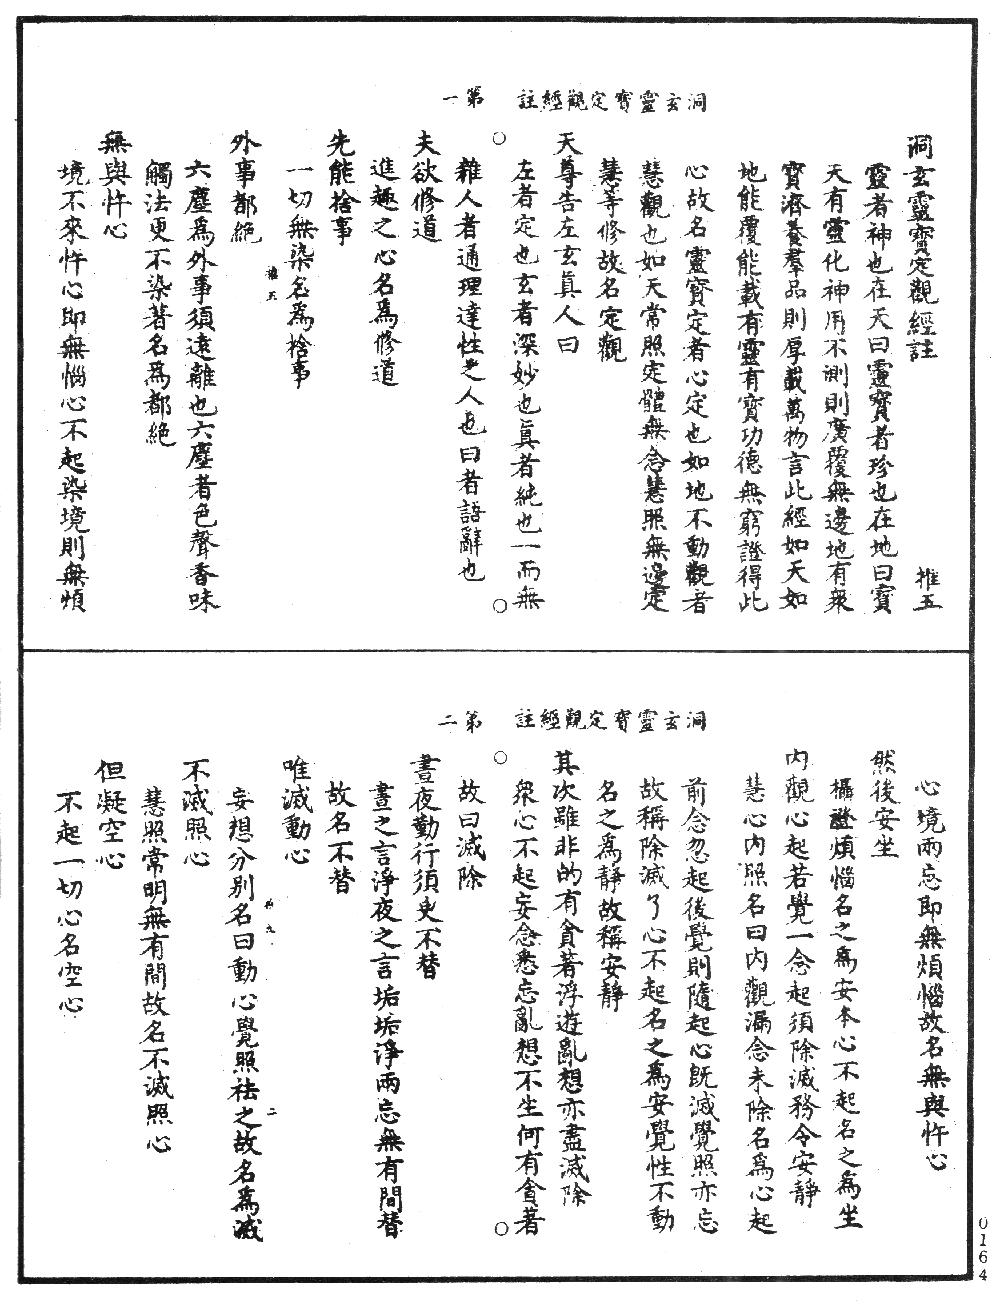 洞玄靈寶定觀經註　第一
洞玄靈寶定觀經註　推五
靈者神也在天曰靈寶者珍也在地曰寶
天有靈化神用不測則廣覆無邊地有衆
寶濟養羣品則厚載萬物言此經如天如
地能覆能載有靈有寶功德無窮證得此
心故名靈寶定者心定也如地不動觀者
慧觀也如天常照定體無念慧照無邊定
慧等修故名定觀
天尊告左玄真人曰
左者定也玄者深妙也真者純也一而無
雜人者通理達性之人也曰者語辭也
夫欲修道
進趣之心名爲修道
先能捨事
一切無染名爲捨事
外事都絕
六塵爲外事須遠離也六塵者色聲香味
觸法更不染著名爲都絕
無與忤心
境不來忤心即無惱心不起染境則無煩
洞玄靈寶定觀經註　第二
心境兩忘即無煩惱故名無與忤心
然後安坐
攝證煩惱名之爲安本心不起名之爲坐
内觀心起若覺一念起須除滅務令安靜
慧心内照名曰内觀漏念未除名爲心起
前念忽起後覺則隨起心既滅覺照亦忘
故稱除滅了心不起名之爲安覺性不動
名之爲靜故稱安靜
其次雖非的有貪著浮遊亂想亦盡滅除
衆心不起妄念悉忘亂想不生何有貪著
故曰滅除
晝夜勤行須臾不替
晝之言淨夜之言垢垢淨兩忘無有間替
故名不替
唯滅動心
妄想分别名曰動心覺照祛之故名爲滅
不滅照心
慧照常明無有間故名不滅照心
但凝空心
不起一切心名空心
二
0164